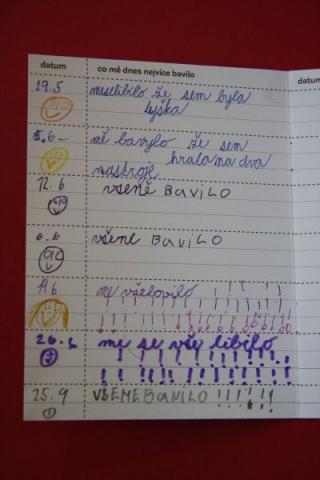 datum co mě dnes nejvíce bavilo
datum
19.5 meselibilo že sem byla
lyška
5.6 mě bavylo že sem
hrala na dva
nastroje
12.6 vsene BaviLO
6.6 všene BaviLO
19.6 me všelovilo ! ! ! ! ! !
26.6 mě se vše libilo
25.9 VŠEMEBAVILO ! ! ! ! !